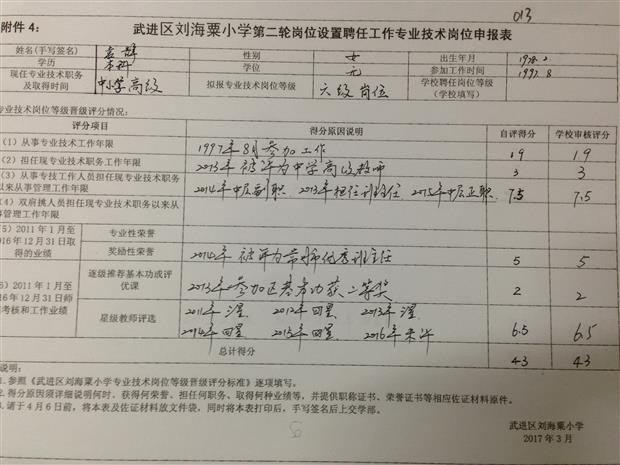 013
附件4：
武进区刘海粟小学第二轮岗位设置聘任工作专业技术岗位申报表
姓名(手写签名) 袁 性别 女 出生年月 1978.2
学历 本科 学位 无 参加工作时间 1997.8
现任专业技术职务及取得时间 中学高级 拟报专业技术岗位等级 六级岗位 学校聘任岗位等级(学校填写)
专业技术岗位等级晋级评分情况：
评分项目 得分原因说明 自评得分 学校审核评分
(1) 从事专业技术工作年限 1997年8月参加工作 19 19
(2) 担任现专业技术职务工作年限 2013年被评为中学高级教师 3 3
(3) 从事专技工作人员担任现专业技术职务以来从事管理工作年限 2014年中层副职 2013年担任 2015年中层正职 7.5 7.5
(4) 双肩挑人员担任现专业技术职务以来从事管理工作年限
(5) 2011年1月至2016年12月31日取得的业绩 专业性荣誉
奖励性荣誉 2014年被评为常州市优秀班主任 5 5
(6) 2011年1月至2016年12月31日师德考核和工作业绩 逐级推荐基本功或评优课 2013年参加区基本功获二等奖 2 2
星级教师评选 2011年三星 2012年四星 2013年三星
2014年四星 2015年四星 2016年未评 6.5 6.5
总计得分 43 43
说明：
1.参照《武进区刘海粟小学专业技术岗位等级晋级评分标准》逐项填写。
2.得分原因须详细说明何时、获得何荣誉、担任何职务、取得何种业绩等，并提供职称证书、荣誉证书等相应佐证材料原件。
3.请于4月6日前，将本表及佐证材料放文件袋，同时将本表打印后，手写签名后上交学部。
武进区刘海粟小学
2017年3月